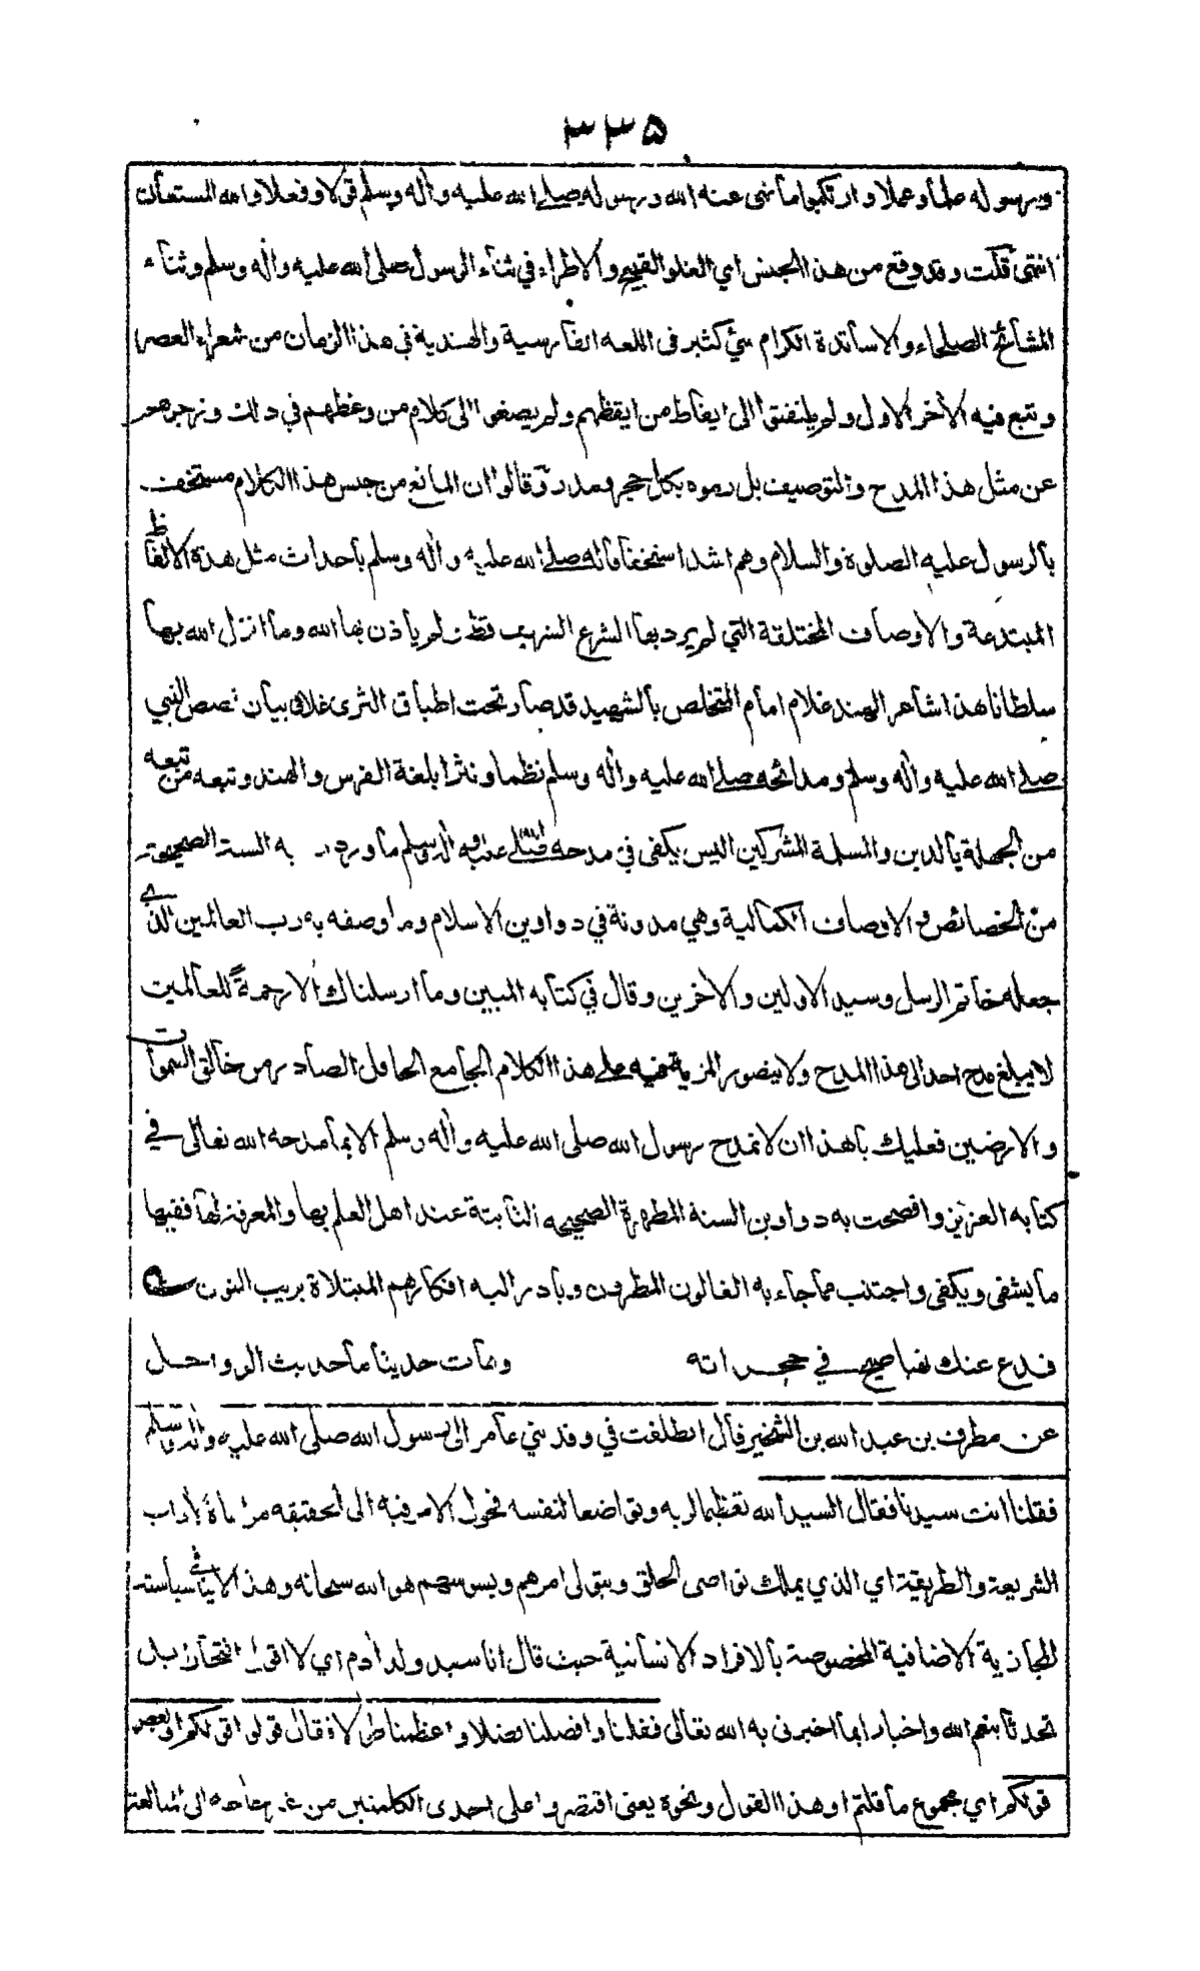 ٣٣٥
وبرسوله علما وعملا وارتكبوا ما نهى عنه الله ورسوله صلى الله عليه واٰله وسلم قولا وفعلا والله المستعان
انتهى قلت وقد وقع من هذا الجنس اي الغلو القبيح والاطراء في ثناء الرسول صلى الله عليه واٰله وسلم وثناء
المشائخ الصلحاء والاساتذة الكرام شيء كثير في اللغة الفارسية والهندية في هذا الزمان من شعراء العصر
وتتبع فيه الاٰخر الاول ولم يلتفتوا الى ايقاظ من ايقظهم ولم يصغوا الى كلام من وعظهم في ذلك وزجرهم
عن مثل هذا المدح والتوصيف بل رموه بكل حجر ومدر وقالوا ان المانع من جنس هذا الكلام مستخف
بالرسول عليه الصلوة والسلام وهم اشد استخفافا له صلى الله عليه واٰله وسلم باحداث مثل هذه الالفاظ
المبتدعة والاوصاف المختلقة التي لم يرد بها الشرع الشريف قط ولم ياذن بها الله وما انزل الله بها
سلطانا هذا شاعر الهند غلام امام المتخلص بالشهيد قد صار تحت اطباق الثرى غلا في بيان قصص النبي
صلى الله عليه واٰله وسلم ومدائحه صلى الله عليه واٰله وسلم نظما ونثرا بلغة الفرس والهند وتبعه من تبعه
من الجهلة بالدين والسلمة المشركين اليس يكفي في مدحه صلى الله عليه واٰله وسلم ما ورد به السنة الصحيحة
من الخصائص والاوصاف الكمالية وهي مدونة في دواوين الاسلام وما وصفه به رب العالمين الذي
جعله خاتم الرسل وسيد الاولين والاٰخرين وقال في كتابه المبين وما ارسلناك الا رحمةً للعالمين
لا يبلغ مدح احد الى هذا المدح ولا يتصور المزية فيه على هذا الكلام الجامع الحافل الصادر من خالق السموات
والارضين فعليك يا هذا ان لا تمدح رسول الله صلى الله عليه واٰله وسلم الا بما مدحه الله تعالى في
كتابه العزيز وافصحت به دواوين السنة المطهرة الصحيحة الثابتة عند اهل العلم بها والمعرفة لها ففيها
ما يشفي ويكفي واجتنب مما جاء به الغالون المطرون وبادر اليه افكارهم المبتلاة بريب المنون
فدع عنك نهبا صيح في حجراته وهات حديثا ما حديث الرواحل
عن مطرف بن عبد الله بن الشخير قال انطلقت في وفد بني عامر الى رسول الله صلى الله عليه واٰله وسلم
فقلنا انت سيدنا فقال السيد الله تعظيما لربه وتواضعا لنفسه فحول الامر فيه الى الحقيقة مراعاة لاٰداب
الشريعة والطريقة اي الذي يملك نواصي الخلق ويتولى امرهم ويسوسهم هو الله سبحانه وهذا لا ينافي سيادته
المجازية الاضافية المخصوصة بالافراد الانسانية حيث قال انا سيد ولد اٰدم اي لا اقول افتخارا بل
تحدثا بنعم الله واخبارا بما اخبرني به الله تعالى فقلنا وافضلنا فضلا واعظمنا طولا فقال قولوا قولكم او بعض
قولكم اي مجموع ما قلتم او هذا القول ونحوه يعني اقتصروا على احدى الكلمتين من غير حاجة الى المبالغة